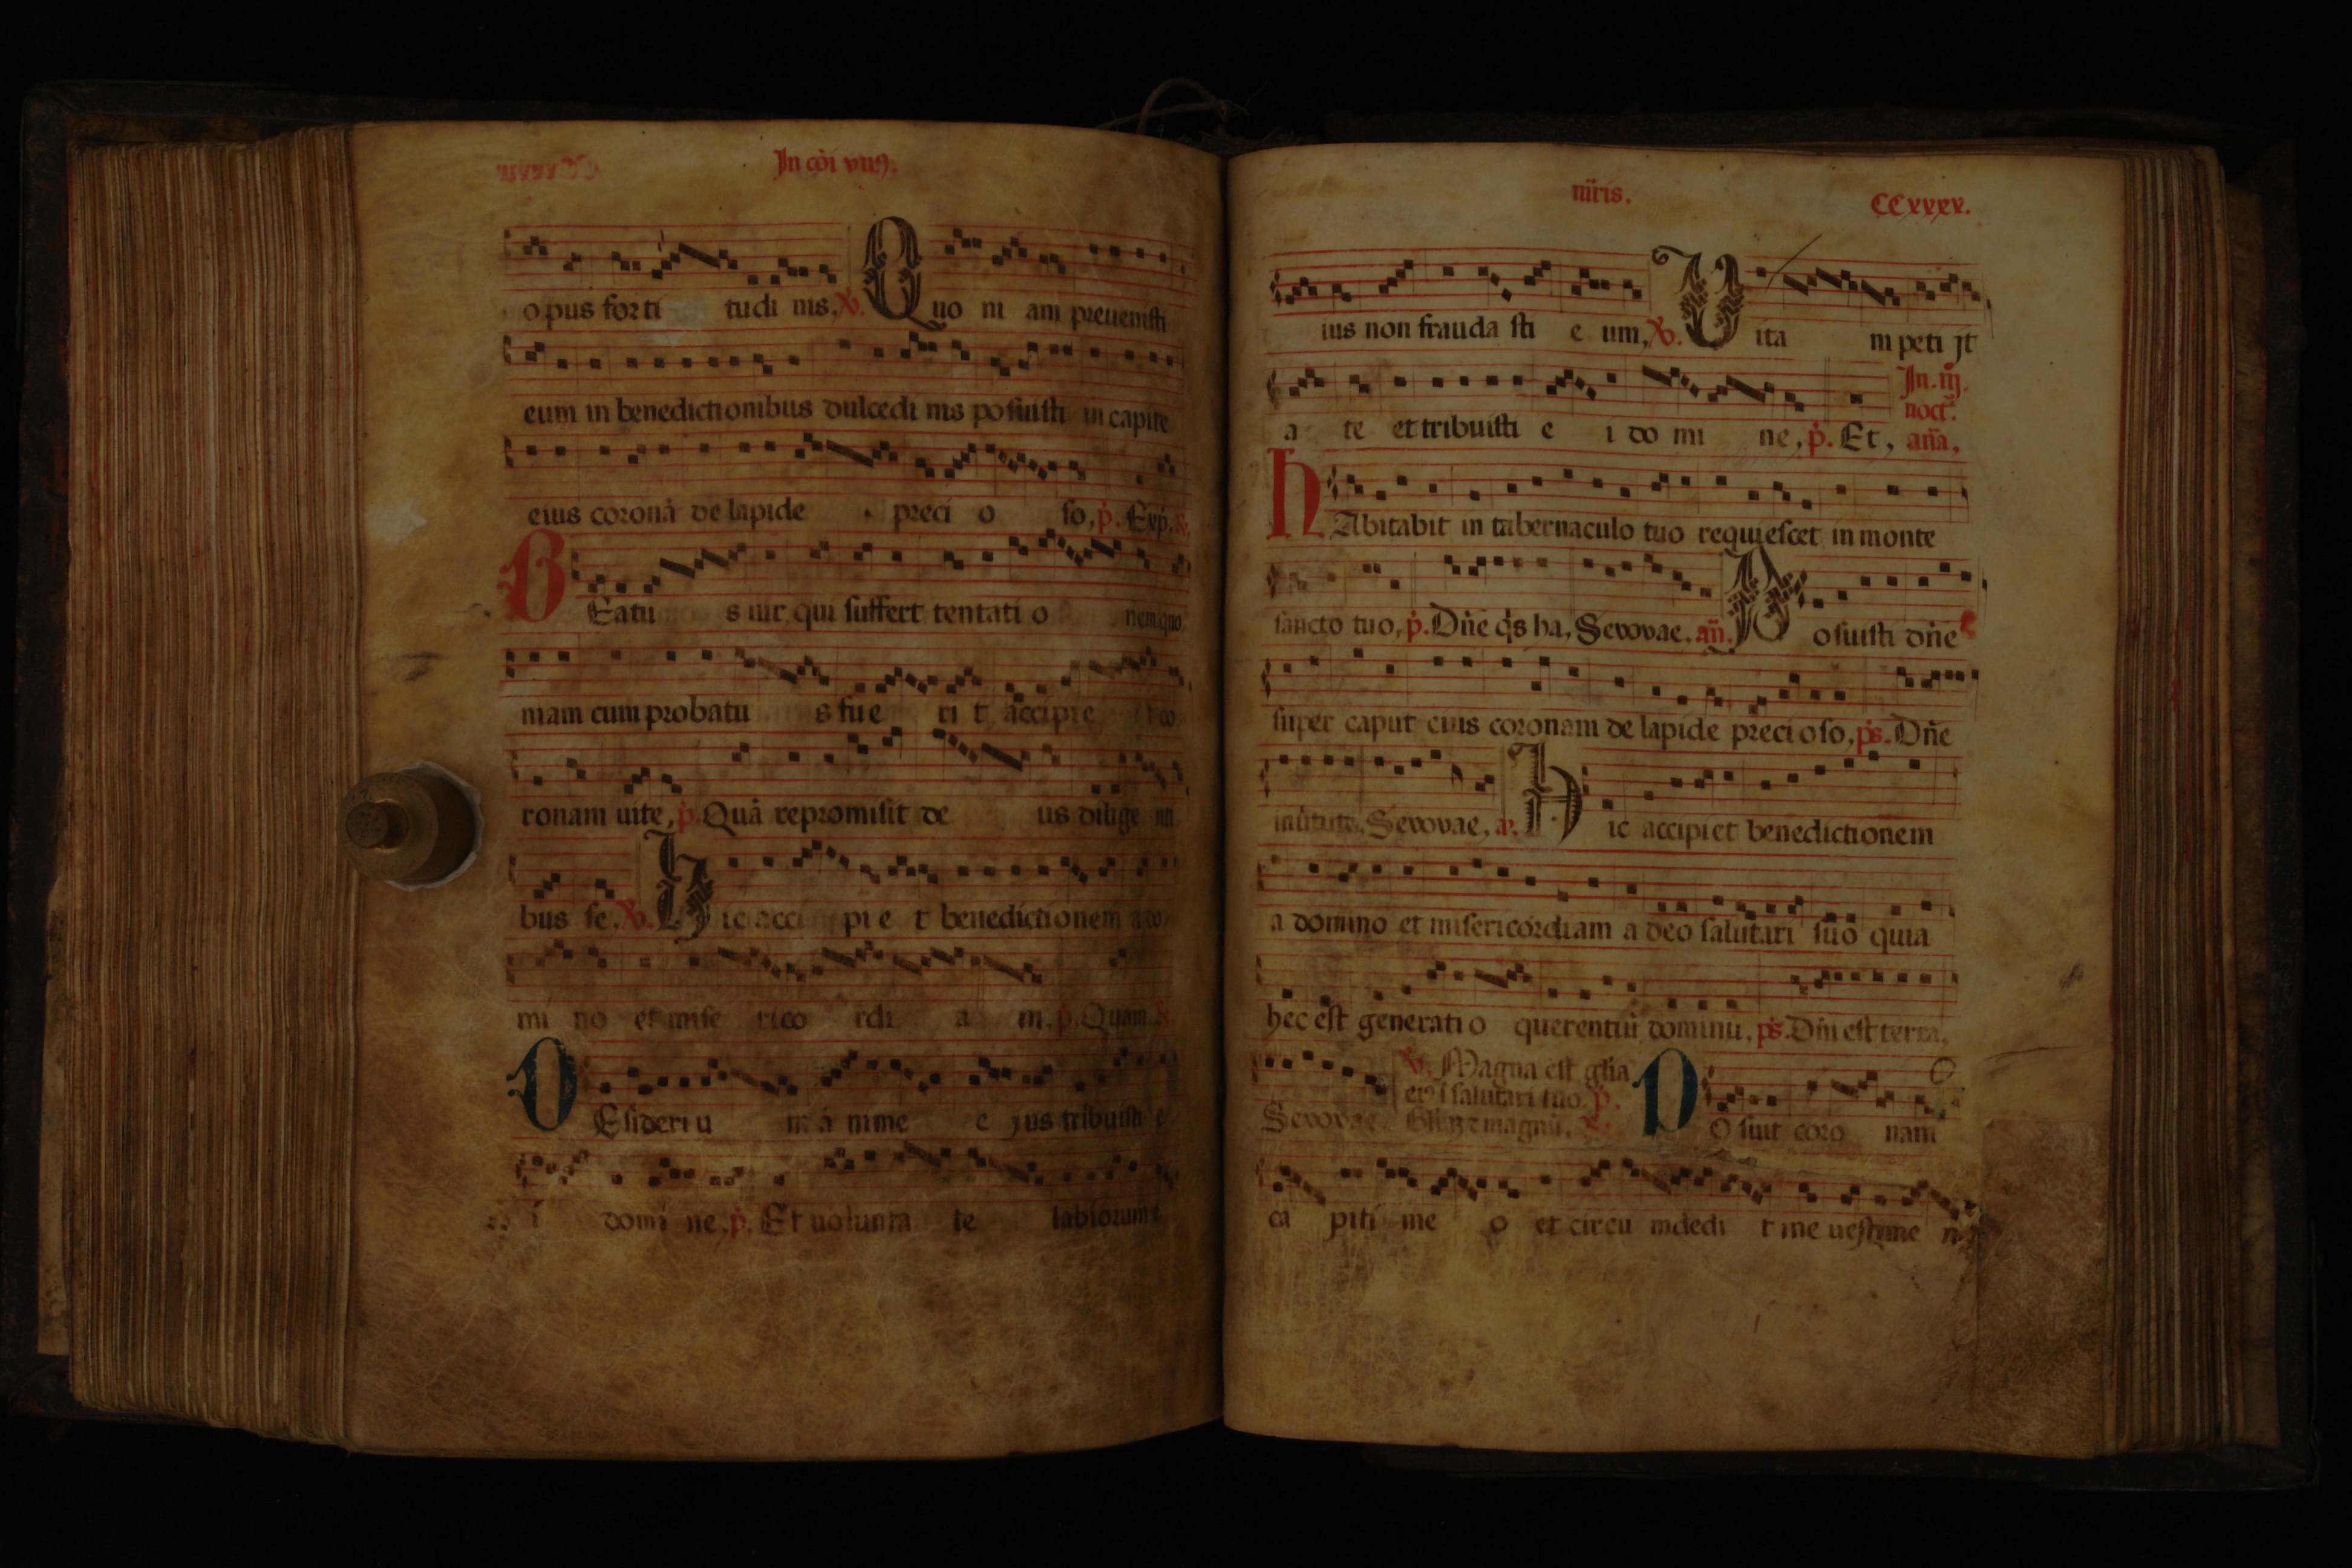 In cōi vnꝰ.
opus forti tudi nis. ℣. Quo ni am preuenisti
eum in benedictionibus dulcedi nis posuisti in capite
eius coronā de lapide preci o so, p̄. Exp̄. ℟.
BEatu s uir qui suffert tentati o nem quo
mam cum probatu s fue ri t accipie t co
ronam uite, p̄. Quā repromisit de us dilige nti
bus se. ℣. Hic acci pi e t benedictionem a do
mi no et mise rico rdi a m, p̄. Quam ℟.
DEsideriu m a nime e jus tribuisti e
i domi ne, p̄. Et uolunta te labiorum e
m̄ris. CCxxxx.
ius non frauda sti e um, ℣. Vita m peti jt
In. iij.
noct̄.
a te et tribuisti e i do mi ne, p̄. Et, an̄a,
HAbitabit in tabernaculo tuo requiescet in monte
sancto tuo, p̄. Dn̄e q̄s ha, Sevovae, an̄. Posuisti dn̄e
super caput eius coronam de lapide precioso, p̄s. Dn̄e
inūtute, Sevovae, a. Hic accipiet benedictionem
a domino et misericordiam a deo salutari suo quia
hec est generatio querentiū dominū, p̄s. Dn̄i est terra,
℣. Magna est gl̄ia
eiꝰ ī salutari tuo, p̄.
Sevovae. Posuit coro nam
ca piti me o et circu mdedi t me uestime n